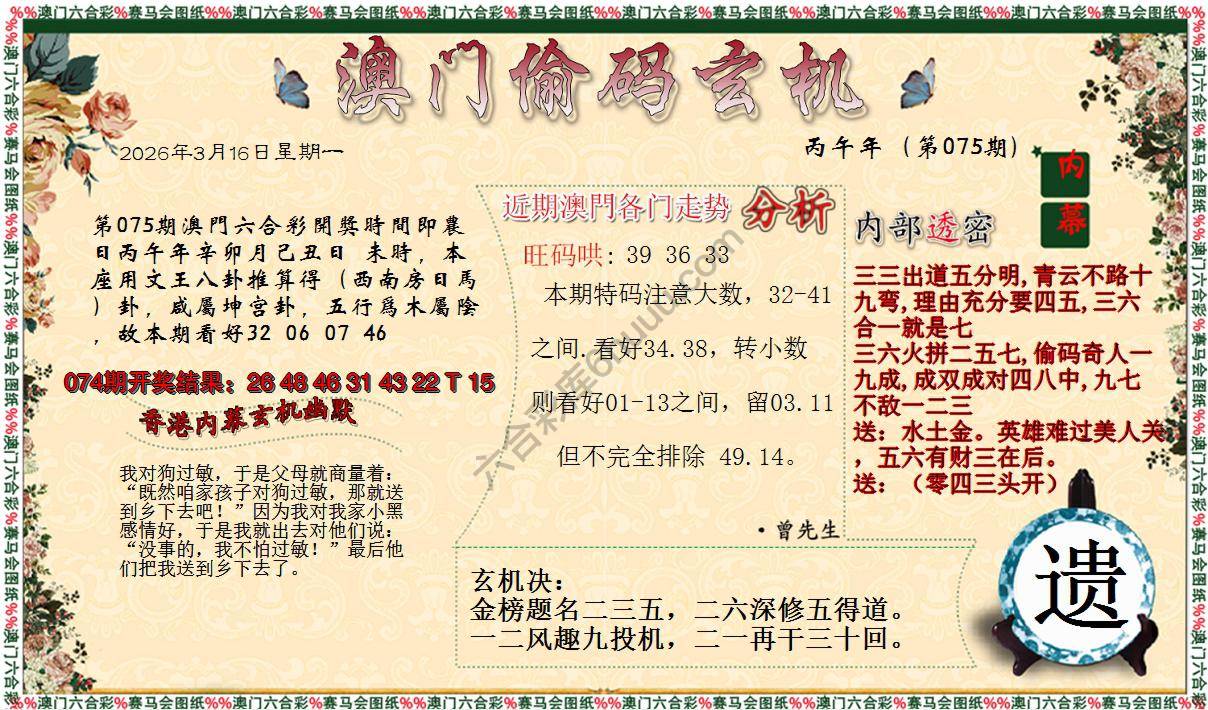 %%澳门六合彩%赛马会图纸%%澳门六合彩%赛马会图纸%%澳门六合彩%赛马会图纸%%澳门六合彩%赛马会图纸%%澳门六合彩%赛马会图纸%%澳门六合彩%赛马会图纸%%
澳门偷码玄机
2026年3月16日星期一
丙午年（第075期）
内幕
第075期澳門六合彩開獎時間即農
日丙午年辛卯月己丑日 未時，本
座用文王八卦推算得（西南房日馬
）卦，咸屬坤宫卦，五行爲木屬陰
，故本期看好32 06 07 46
074期开奖结果：26 48 46 31 43 22 T 15
香港内幕玄机幽默
我对狗过敏，于是父母就商量着：
“既然咱家孩子对狗过敏，那就送
到乡下去吧！”因为我对我家小黑
感情好，于是我就出去对他们说：
“没事的，我不怕过敏！”最后他
们把我送到乡下去了。
近期澳門各门走势 分析
旺码哄: 39 36 33
本期特码注意大数，32-41
之间.看好34.38，转小数
则看好01-13之间，留03.11
但不完全排除 49.14。
·曾先生
内部透密
三三出道五分明,青云不路十
九弯,理由充分要四五,三六
合一就是七
三六火拼二五七,偷码奇人一
九成,成双成对四八中,九七
不敌一二三
送：水土金。英雄难过美人关
，五六有财三在后。
送：（零四三头开）
玄机决：
金榜题名二三五，二六深修五得道。
一二风趣九投机，二一再干三十回。
遗